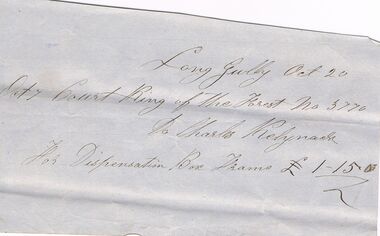 Long Gully Oct 20
Court King of the Forest No 3770
To Charles
For Dispensation Box Frame £ 1-15-0